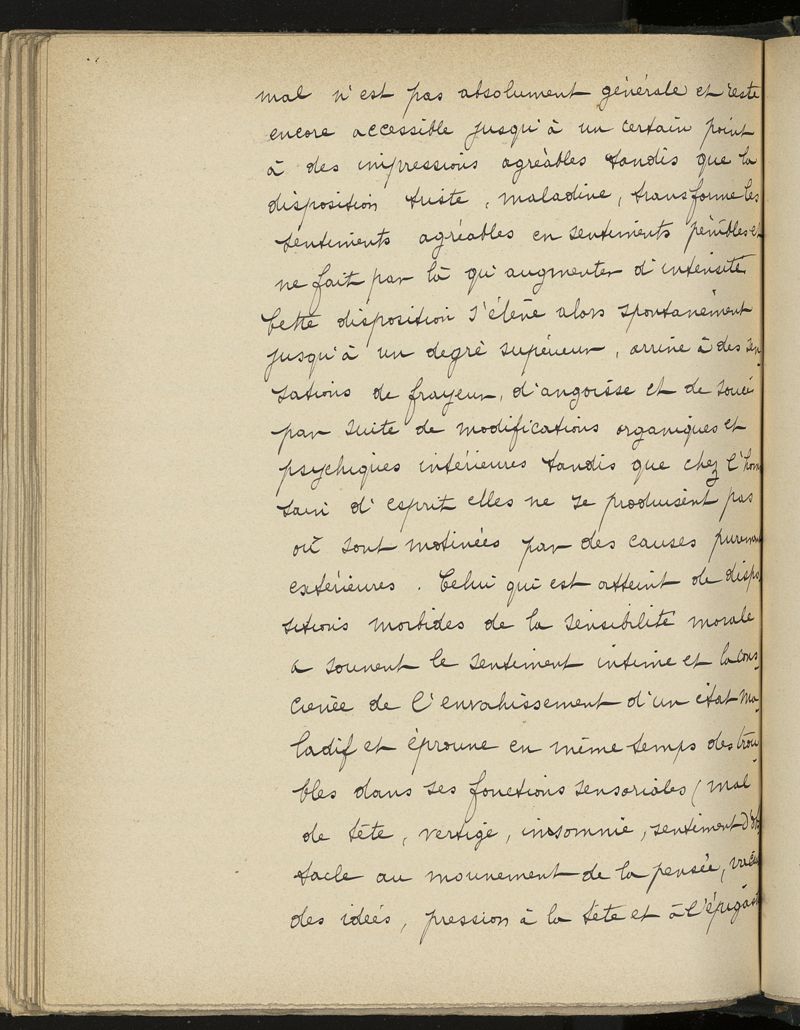 mal n'est pas absolument générale et reste
encore accessible jusqu'à un certain point
à des impressions agréables tandis que la
disposition triste, maladive, transforme les
sentiments agréables en sentiments pénibles et
ne fait par là qu'augmenter d'intensité
Cette disposition s'élève alors spontanément
jusqu'à un degré supérieur, arrive à des sen-
sations de frayeur, d'angoisse et de souci
par suite de modifications organiques et
psychiques intérieures tandis que chez l'hom
sain d'esprit elles ne se produisent pas
où sont motivées par des causes purem
extérieures. Celui qui est atteint de dispo
sitions morbides de la sensibilité morale
a souvent le sentiment intime et la cons-
cience de l'envahissement d'un état ma-
ladif et éprouve en même temps des trou
bles dans ses fonctions sensoriales (mal
de tête, vertige, insomnie, sentiment d'obs
tacle au mouvement de la pensée,
des idées, pression à la tête et à l'épigast